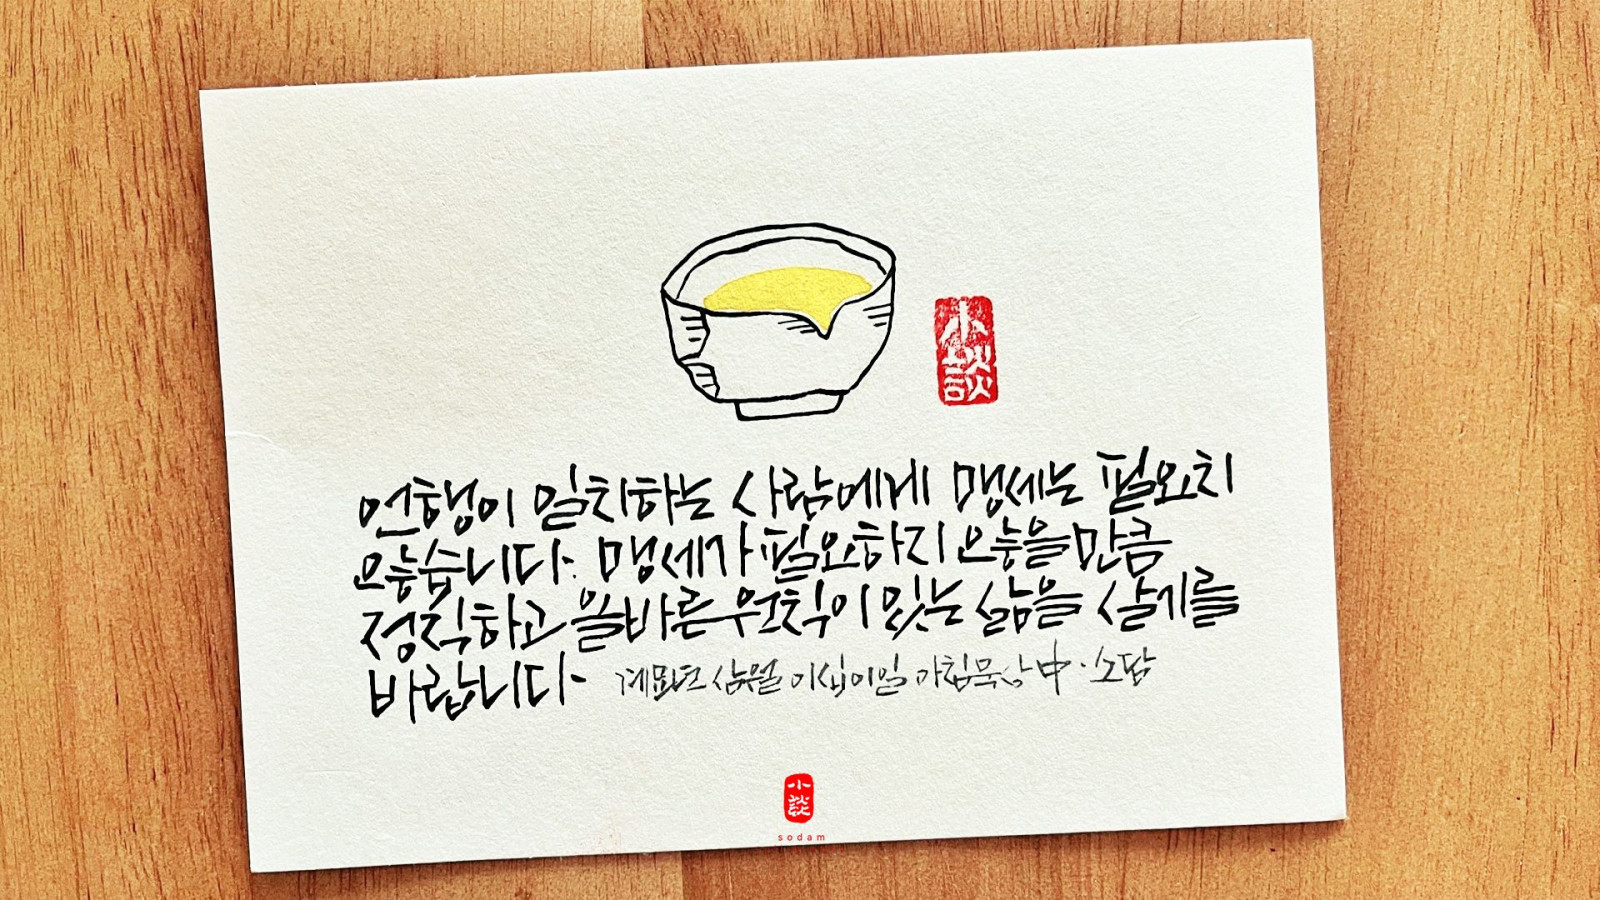 小談
언행이 일치하는 사람에게 맹세는 필요치
않습니다. 맹세가 필요하지 않을만큼
정직하고 올바른 원칙이 있는 삶을 살기를
바랍니다. 계묘년 삼월 이십이일 아침묵상 中. 소담
小談
sodam